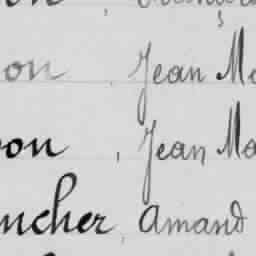 on , Jean Ma
on , Jean Ma
ncher, Amand